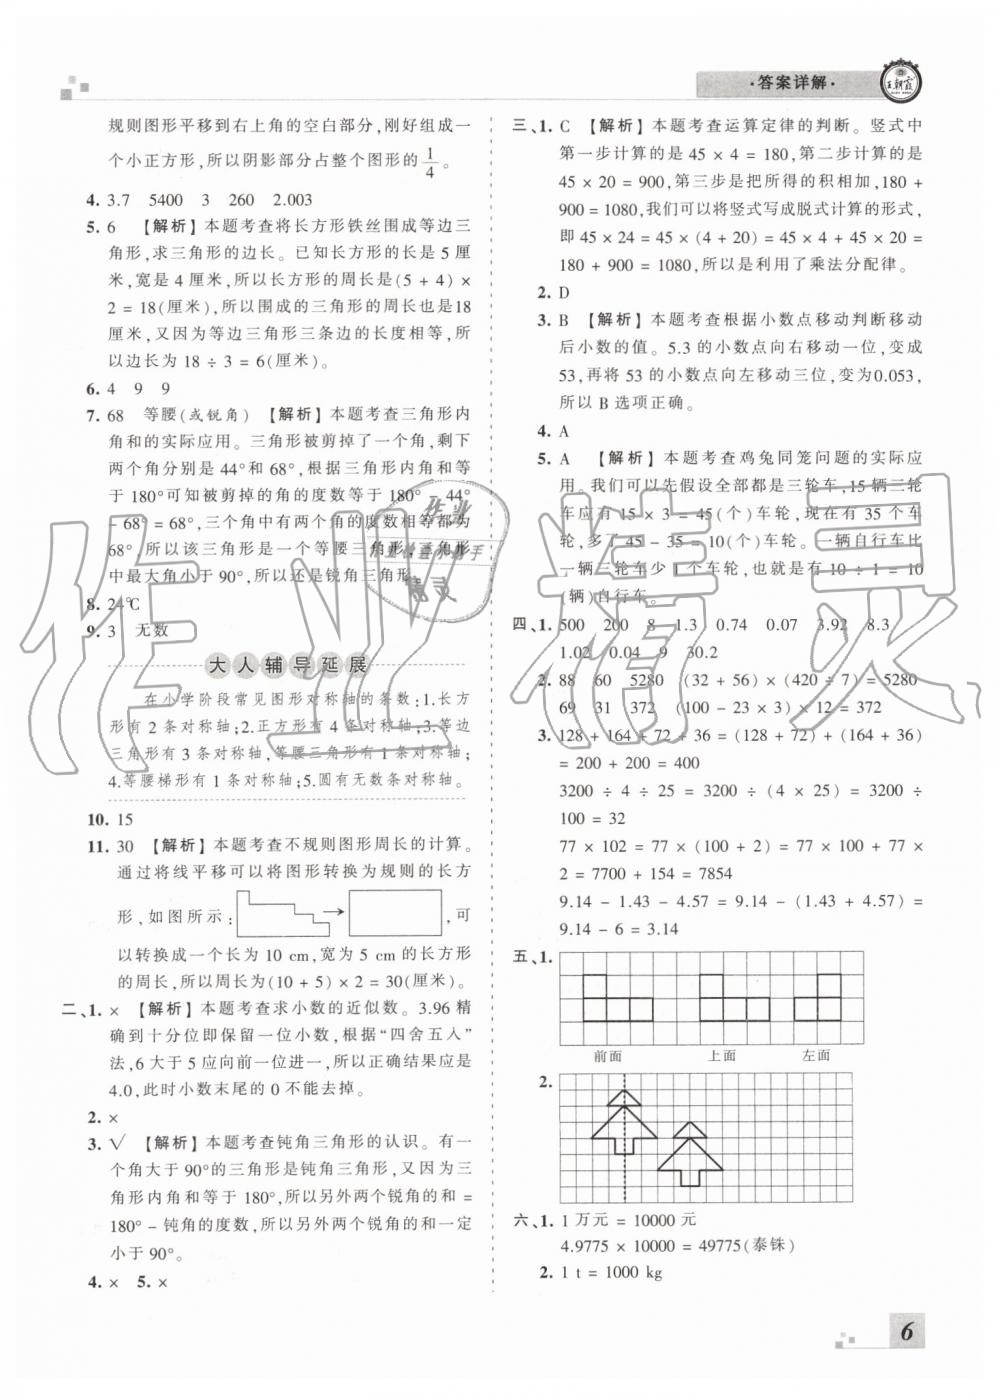 ·答案详解·
王朝霞
规则图形平移到右上角的空白部分,刚好组成一
个小正方形,所以阴影部分占整个图形的1/4。
4. 3.7 5400 3 260 2.003
5. 6 【解析】本题考查将长方形铁丝围成等边三
角形,求三角形的边长。已知长方形的长是 5 厘
米,宽是 4 厘米,所以长方形的周长是(5 + 4) ×
2 = 18(厘米),所以围成的三角形的周长也是18
厘米,又因为等边三角形三条边的长度相等,所
以边长为 18 ÷ 3 = 6(厘米)。
6. 4 9 9
7. 68 等腰(或锐角) 【解析】本题考查三角形内
角和的实际应用。三角形被剪掉了一个角,剩下
两个角分别是 44°和 68°,根据三角形内角和等
于 180°可知被剪掉的角的度数等于 180° - 44°
- 68° = 68°,三个角中有两个角的度数相等都为
68°,所以该三角形是一个等腰三角形,三角形
中最大角小于 90°,所以还是锐角三角形。
8. 24℃
9. 3 无数
大人辅导延展
在小学阶段常见图形对称轴的条数:1.长方
形有 2 条对称轴;2.正方形有 4 条对称轴;3.等边
三角形有 3 条对称轴,等腰三角形有 1 条对称轴;
4.等腰梯形有 1 条对称轴;5.圆有无数条对称轴。
10. 15
11. 30 【解析】本题考查不规则图形周长的计算。
通过将线平移可以将图形转换为规则的长方
形,如图所示: → ,可
以转换成一个长为 10 cm,宽为 5 cm 的长方形
的周长,所以周长为(10 + 5) × 2 = 30(厘米)。
二、1. × 【解析】本题考查求小数的近似数。3.96 精
确到十分位即保留一位小数,根据“四舍五入”
法,6 大于 5 应向前一位进一,所以正确结果应是
4.0,此时小数末尾的 0 不能去掉。
2. ×
3. √ 【解析】本题考查钝角三角形的认识。有一
个角大于 90°的三角形是钝角三角形,又因为三
角形内角和等于 180°,所以另外两个锐角的和 =
180° - 钝角的度数,所以另外两个锐角的和一定
小于 90°。
4. × 5. ×
三、1. C 【解析】本题考查运算定律的判断。竖式中
第一步计算的是 45 × 4 = 180,第二步计算的是
45 × 20 = 900,第三步是把所得的积相加,180 +
900 = 1080,我们可以将竖式写成脱式计算的形式,
即 45 × 24 = 45 × (4 + 20) = 45 × 4 + 45 × 20 =
180 + 900 = 1080,所以是利用了乘法分配律。
2. D
3. B 【解析】本题考查根据小数点移动判断移动
后小数的值。5.3 的小数点向右移动一位,变成
53,再将 53 的小数点向左移动三位,变为0.053,
所以 B 选项正确。
4. A
5. A 【解析】本题考查鸡兔同笼问题的实际应
用。我们可以先假设全部都是三轮车,15 辆三轮
车应有 15 × 3 = 45(个)车轮,现在有 35 个车
轮,多了 45 - 35 = 10(个)车轮。一辆自行车比
一辆三轮车少 1 个车轮,也就是有 10 ÷ 1 = 10
(辆)自行车。
四、1. 500 200 8 1.3 0.74 0.07 3.92 8.3
1.02 0.04 9 30.2
2. 88 60 5280 (32 + 56) × (420 ÷ 7) = 5280
69 31 372 (100 - 23 × 3) × 12 = 372
3. 128 + 164 + 72 + 36 = (128 + 72) + (164 + 36)
= 200 + 200 = 400
3200 ÷ 4 ÷ 25 = 3200 ÷ (4 × 25) = 3200 ÷
100 = 32
77 × 102 = 77 × (100 + 2) = 77 × 100 + 77 ×
2 = 7700 + 154 = 7854
9.14 - 1.43 - 4.57 = 9.14 - (1.43 + 4.57) =
9.14 - 6 = 3.14
五、1.
前面 上面 左面
2.
六、1. 1 万元 = 10000 元
4.9775 × 10000 = 49775(泰铢)
2. 1 t = 1000 kg
6
作业精灵
作业
精灵